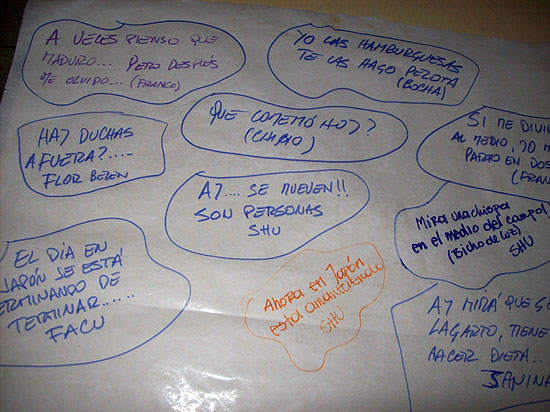 A VECES PIENSO QUE
MADURO... PERO DESPUÉS
ME OLVIDO... (FRANCO)
YO LAS HAMBURGUESAS
TE LAS HAGO PELOTA
(BOCHA)
HAY DUCHAS
AFUERA?.....
FLOR BELEN
QUE COMEMO HOY?
SI ME DIVID
AL MEDIO, YO M
PARTO EN DOS
(FRAN
AY.... SE MUEVEN!!
SON PERSONAS
SHU
Mira una chispa
en el medio del campo!
(Bicho de luz)
SHU
EL DÍA EN
JAPÓN SE ESTÁ
ERMINANDO DE
TERMINAR......
FACU
Ahora en Japón
está amaneciendo
SHU
AY MIRÁ QUE GO
LAGARTO, TIENE
HACER DIETA...
JANINA